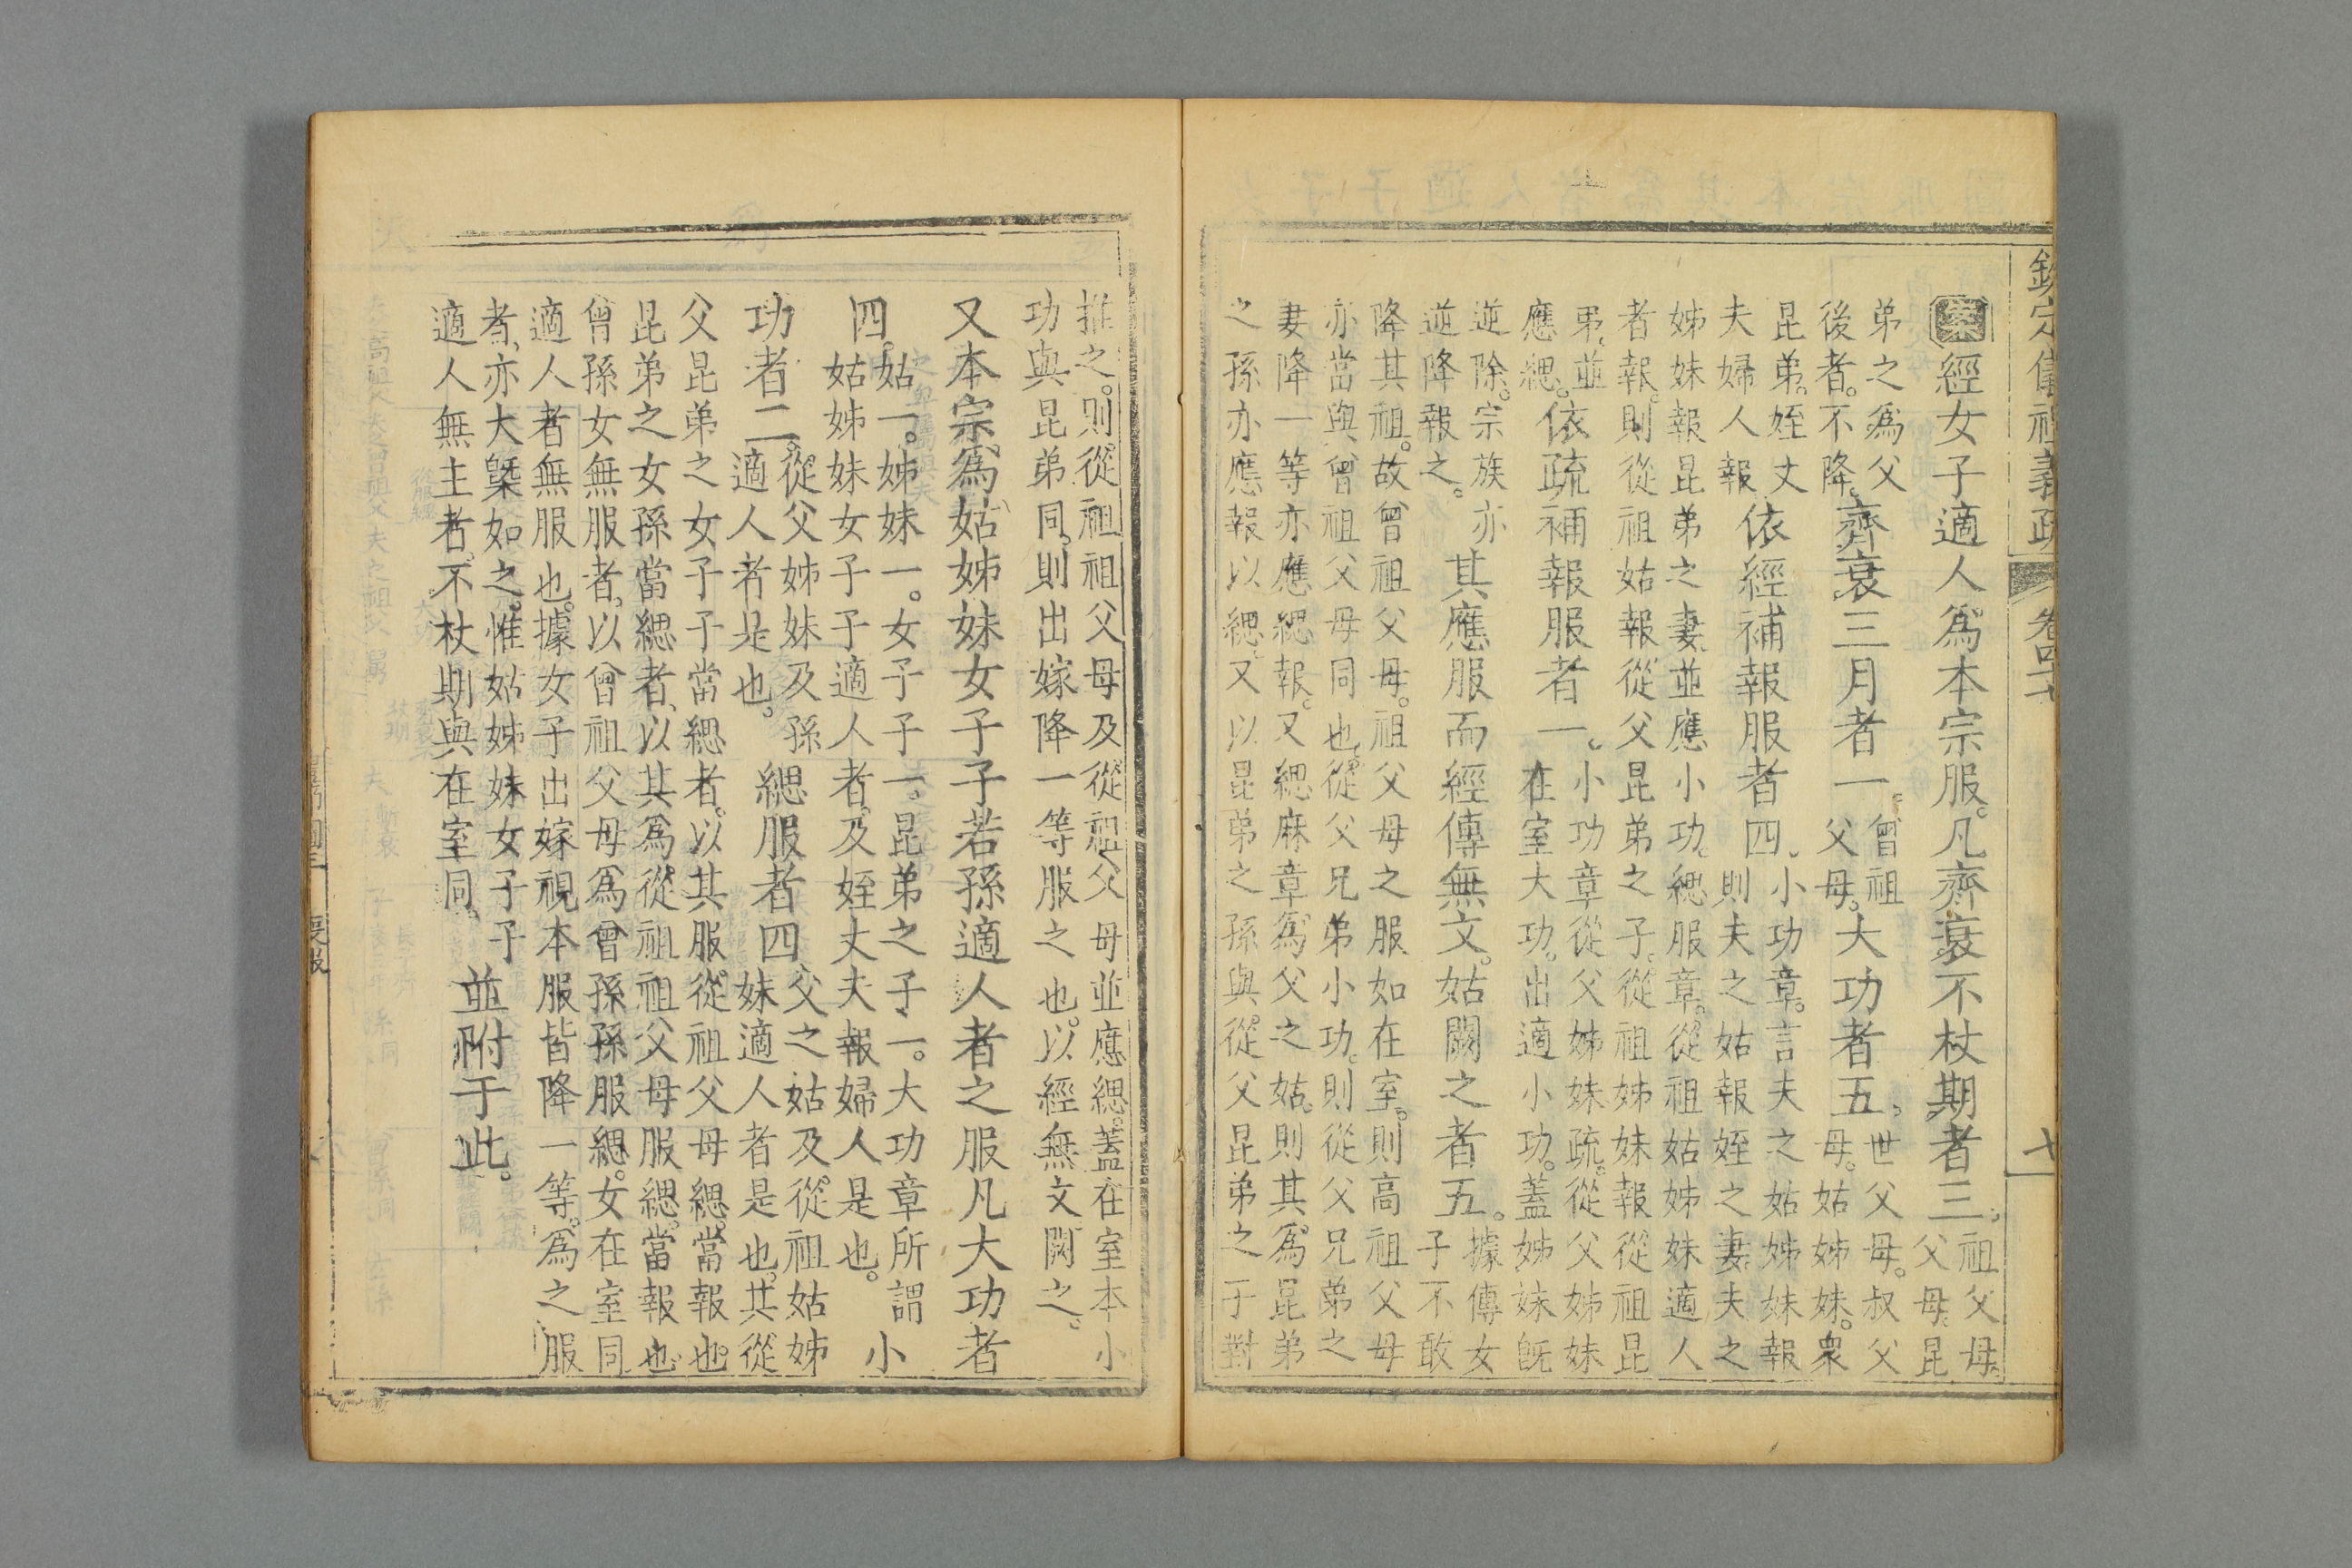 欽定儀禮義疏 卷四十 七
案經女子適人爲本宗服。凡齊衰不杖期者三。祖父母。父母。昆
弟之爲父後者。不降。齊衰三月者一。曾祖父母。大功者五。世父母。叔父母。姑姊妹。衆
昆弟。姪丈夫婦人報依經補報服者四。小功章。言夫之姑姊妹報則夫之姑報姪之妻夫之
姊妹報昆弟之妻並應小功。緦服章。從祖姑姊妹適人
者報。則從祖姑報從父昆弟之子。從祖姊妹報從祖昆
弟。並應緦。依疏補報服者一。小功章從父姊妹疏。從父姊妹在室大功。出適小功。蓋姊妹旣
逆除。宗族亦逆降報之。其應服而經傳無文。姑闕之者五。據傳女子不敢
降其祖。故曾祖父母。祖父母之服如在室。則高祖父母
亦當與曾祖父母同也。從父兄弟小功。則從父兄弟之
妻降一等亦應緦報。又緦麻章爲父之姑。則其爲昆弟
之孫亦應報以緦又以昆弟之孫與從父昆弟之子對
推之。則從祖祖父母及從祖父母並應緦。蓋在室本小
功與昆弟同。則出嫁降一等服之也。以經無文闕之。
又本宗。爲姑姊妹女子子若孫適人者之服凡大功者
四。姑一。姊妹一。女子子一。昆弟之子一。大功章所謂姑姊妹女子子適人者。及姪丈夫報婦人是也。小
功者二。從父姊妹及孫適人者是也。緦服者四父之姑及從祖姑姊妹適人者是也。其從
父昆弟之女子子當緦者。以其服從祖父母緦。當報也。
昆弟之女孫當緦者、以其爲從祖祖父母服緦。當報也
曾孫女無服者、以曾祖父母爲曾孫孫服緦。女在室同
適人者無服也。據女子出嫁視本服皆降一等。爲之服
者、亦大槩如之。惟姑姊妹女子子適人無主者。不杖期與在室同。並附于此。
喪服